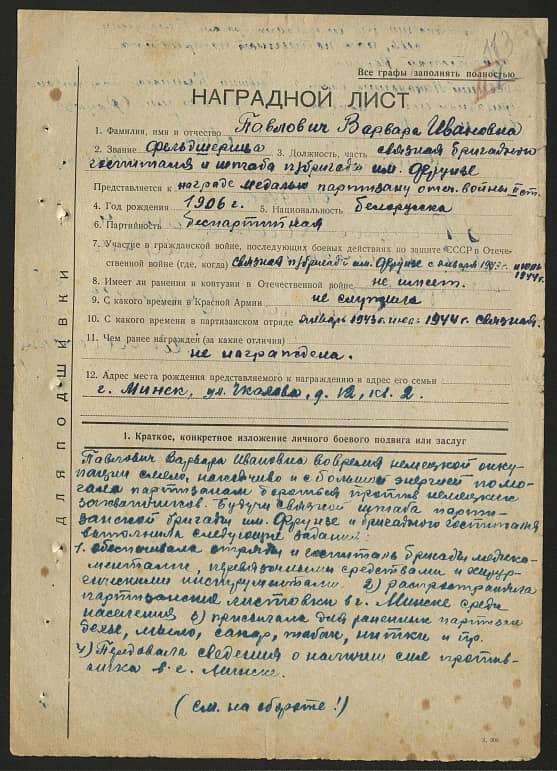 113
Все графы заполнять полностью
НАГРАДНОЙ ЛИСТ
1. Фамилия, имя и отчество Павлович Варвара Ивановна
2. Звание фельдшерица 3. Должность, часть связная бригадного
госпиталя и штаба п/бригады им. Фрунзе
Представляется к награде медалью партизану отеч. войны II ст.
4. Год рождения 1906 г. 5. Национальность белорусска
6. Партийность беспартийная
7. Участие в гражданской войне, последующих боевых действиях по защите СССР и Отече-
ственной войне (где, когда) связная п/бригады им. Фрунзе с января 1943 г. июль 1944 г.
8. Имеет ли ранения и контузии в Отечественной войне не имеет.
9. С какого времени в Красной Армии не служила
10. С какого времени в партизанском отряде январь 1943 г. июль 1944 г. связная.
11. Чем ранее награжден (за какие отличия)
не награждена.
12. Адрес места рождения представляемого к награждению и адрес его семьи
г. Минск, ул. Чкалова, д. 12, кв. 2.
ДЛЯ ПОДШИВКИ
1. Краткое, конкретное изложение личного боевого подвига или заслуг
Павлович Варвара Ивановна вовремя немецкой окку-
пации смело, находчиво и с большой энергией помо-
гала партизанам бороться против немецких
захватчиков. Будучи связной штаба парти-
занской бригады им. Фрунзе и бригадного госпиталя
выполняла следующие задания:
1. обеспечивала отряды и госпиталь бригады медика-
ментами, перевязочными средствами и хирур-
гическими инструментами 2) распространяла
партизанские листовки в г. Минске среди
населения 3) присылала для раненых партизан
мыло, сахар, табак, нитки и пр.
4) Передавала сведения о наличии сил против-
ника в г. Минске.
(см. на обороте!)